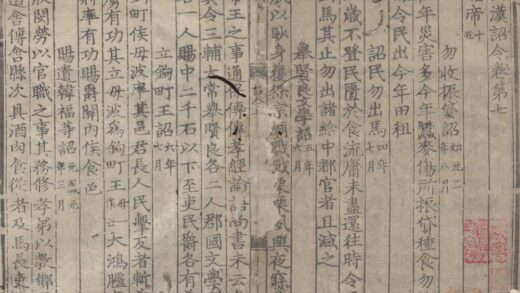 漢詔令卷第七
帝 十
勿收振貸詔 始元二年八月
年災害多今年蠶麥傷所振貸種食勿
令民出今年田租
詔民勿出馬 四年
歲不登民匱於食流庸未盡還往時令
馬其止勿出諸給中都官者且減之
舉賢良文學詔 五年六月
以眇身獲保宗廟戰戰栗栗夙興夜寐
帝王之事通保傅傳孝經論語尚書未云
其令三輔太常舉賢良各二人郡國文學
人賜中二千石以下至吏民爵各有
立鉤町王詔 六年
町侯毋波率其邑君長人民擊反者斬
虜有功其立毋波為鉤町王 大鴻臚
將率有功賜爵關內侯食邑
賜遣韓福等詔 元鳳元年三月
閔勞以官職之事其務修孝弟以教鄉
道舍傳舍縣次具酒肉食從者及馬長吏